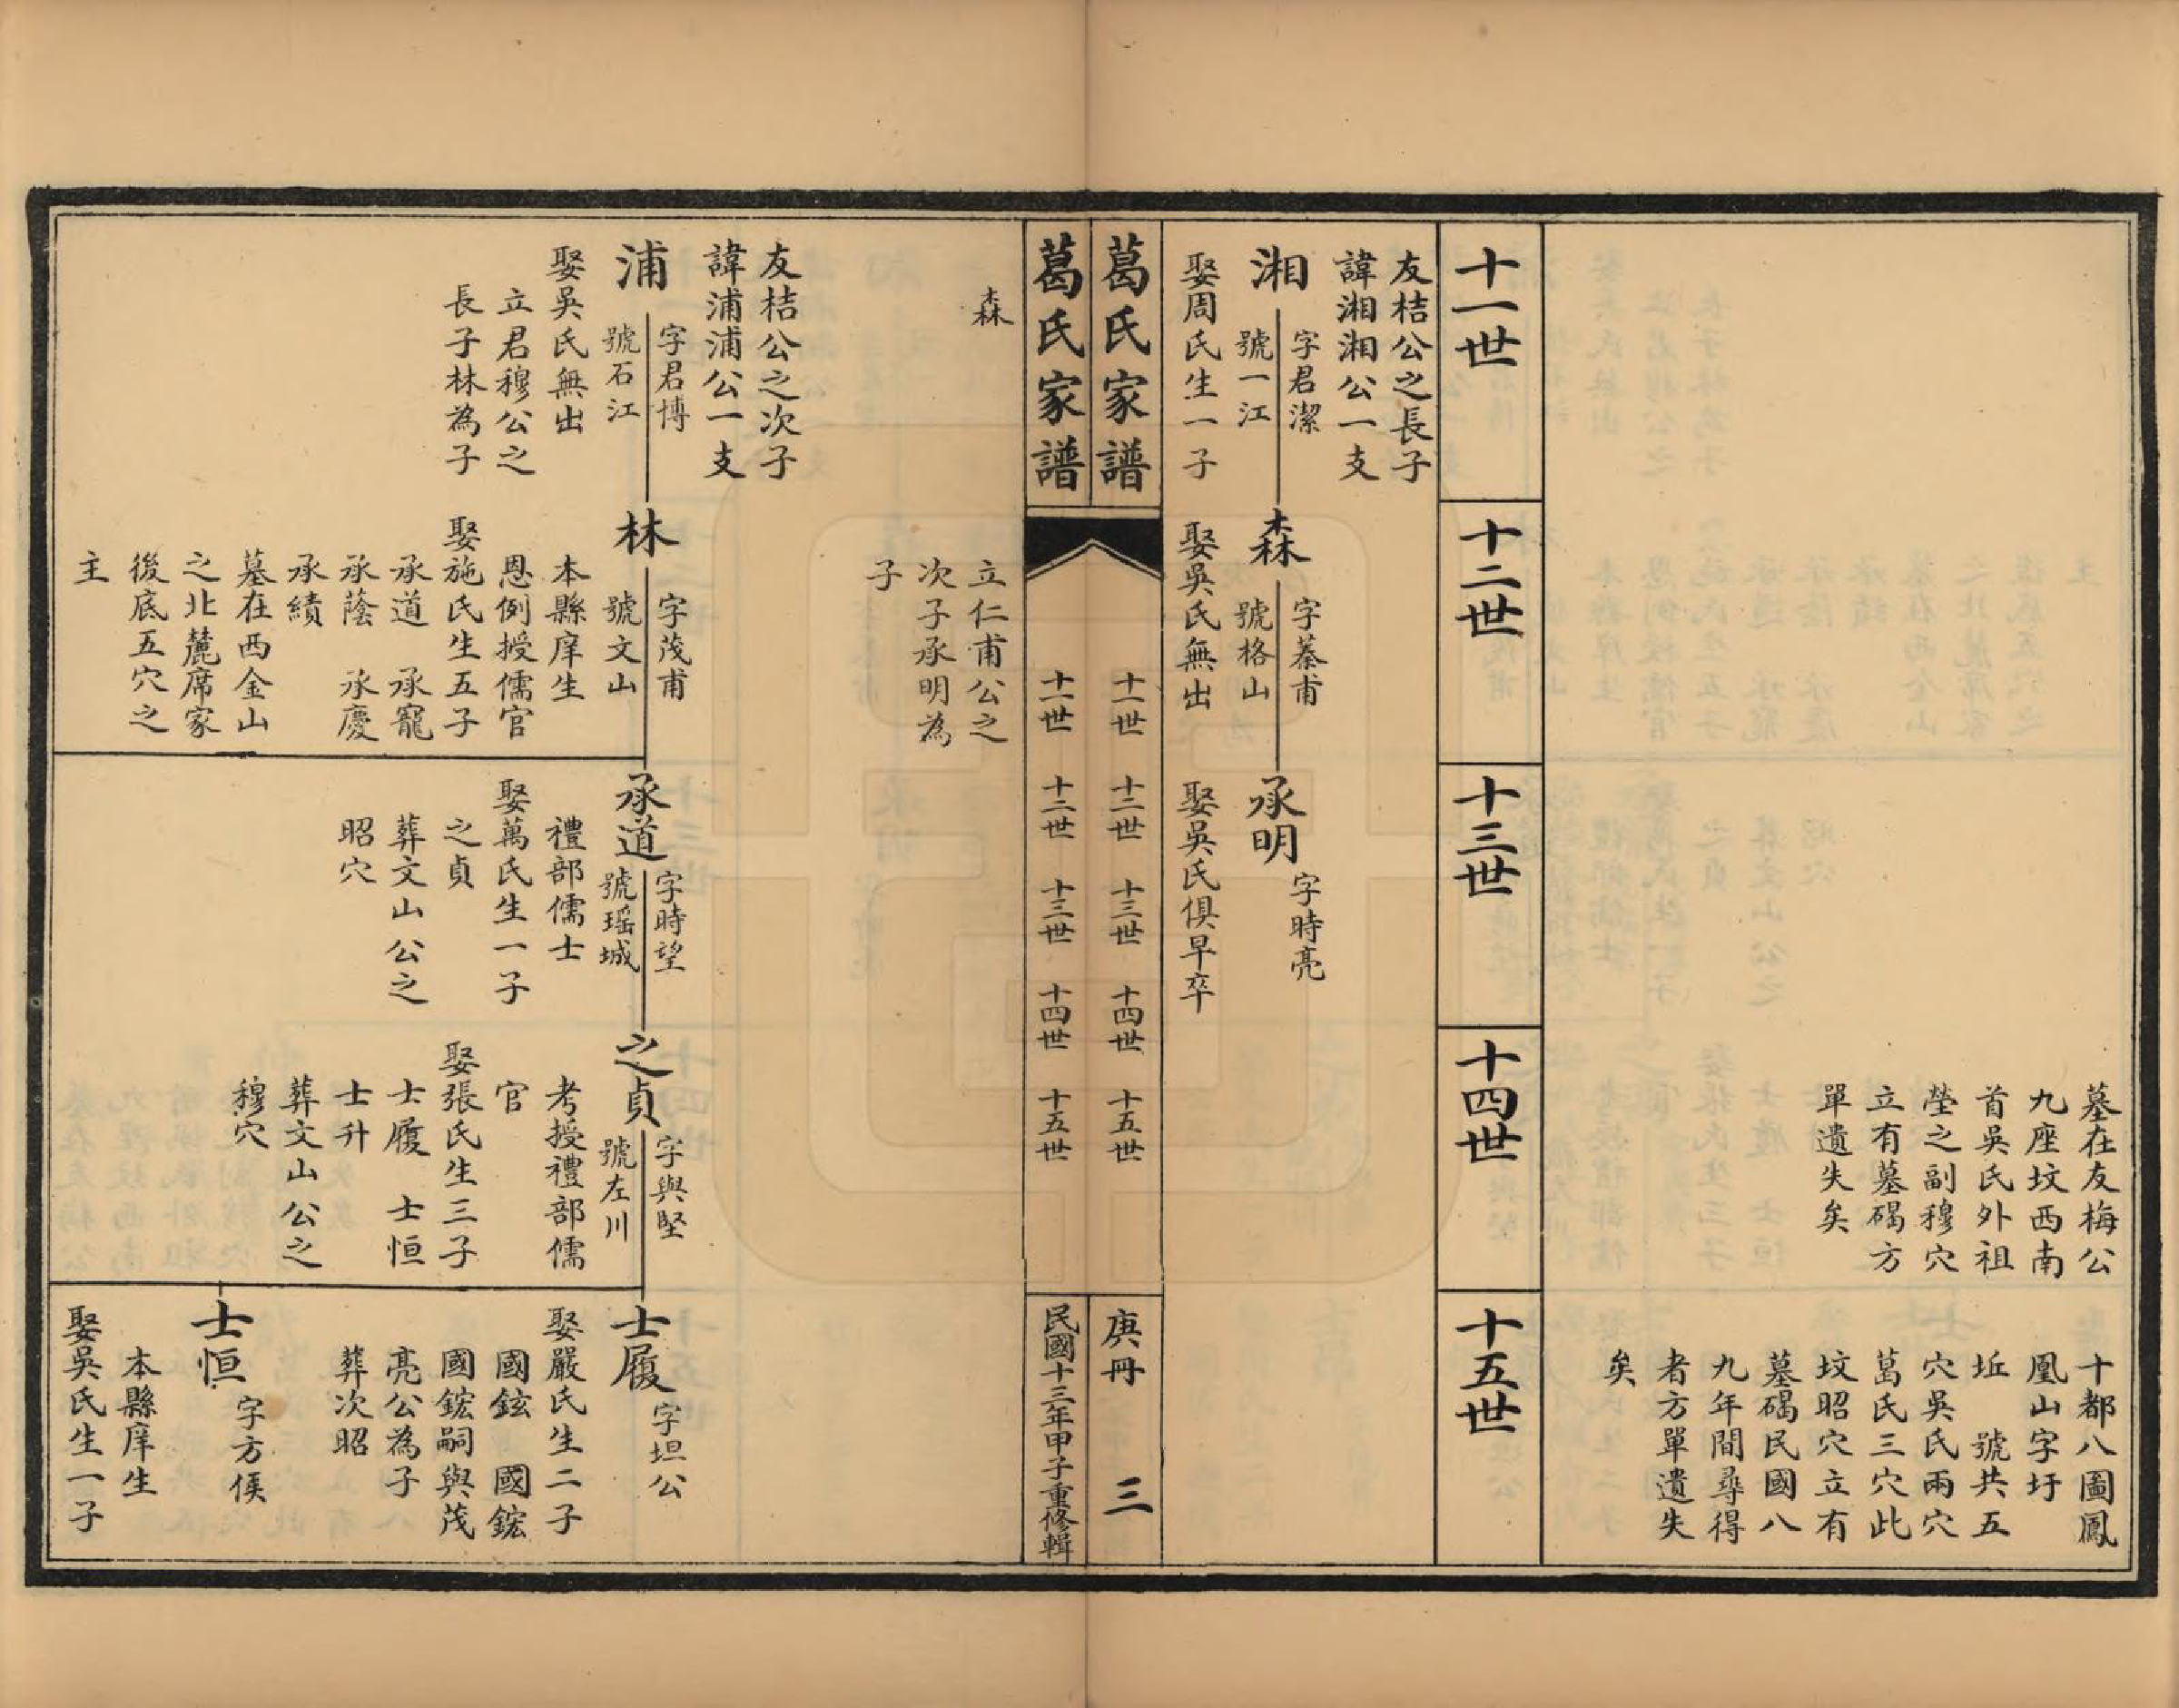 墓在友梅公
九座坟西南
首吳氏外祖
塋之副穆穴
立有墓碣方
單遺失矣
十都八圖鳳
凰山字圩
坵　號共五
穴吳氏兩穴
葛氏三穴此
坟昭穴立有
墓碣民國八
九年間尋得
者方單遺失
矣
十一世
十二世
十三世
十四世
十五世
友桔公之長子
諱湘湘公一支
湘
字君潔
號一江
娶周氏生一子
森
字蓁甫
號格山
娶吳氏無出
承明
字時亮
娶吳氏俱早卒
葛氏家譜
十一世　十二世　十三世　十四世　十五世
庚冊　三
葛氏家譜
十一世　十二世　十三世　十四世　十五世
民國十三年甲子重修輯
森
立仁甫公之
次子承明為
子
友桔公之次子
諱浦浦公一支
浦
字君博
號石江
娶吳氏無出
立君穆公之
長子林為子
林
字茂甫
號文山
本縣庠生
恩例授儒官
娶施氏生五子
承道　承寵
承蔭　承慶
承績
墓在西金山
之北麓席家
後底五穴之
主
承道
字時望
號瑶城
禮部儒士
娶萬氏生一子
之貞
葬文山公之
昭穴
之貞
字與堅
號左川
考授禮部儒
官
娶張氏生三子
士履　士恒
士升
葬文山公之
穆穴
士履
字坦公
娶嚴氏生二子
國鉉　國鋐
國鋐嗣與茂
亮公為子
葬次昭
士恒
字方侯
本縣庠生
娶吳氏生一子